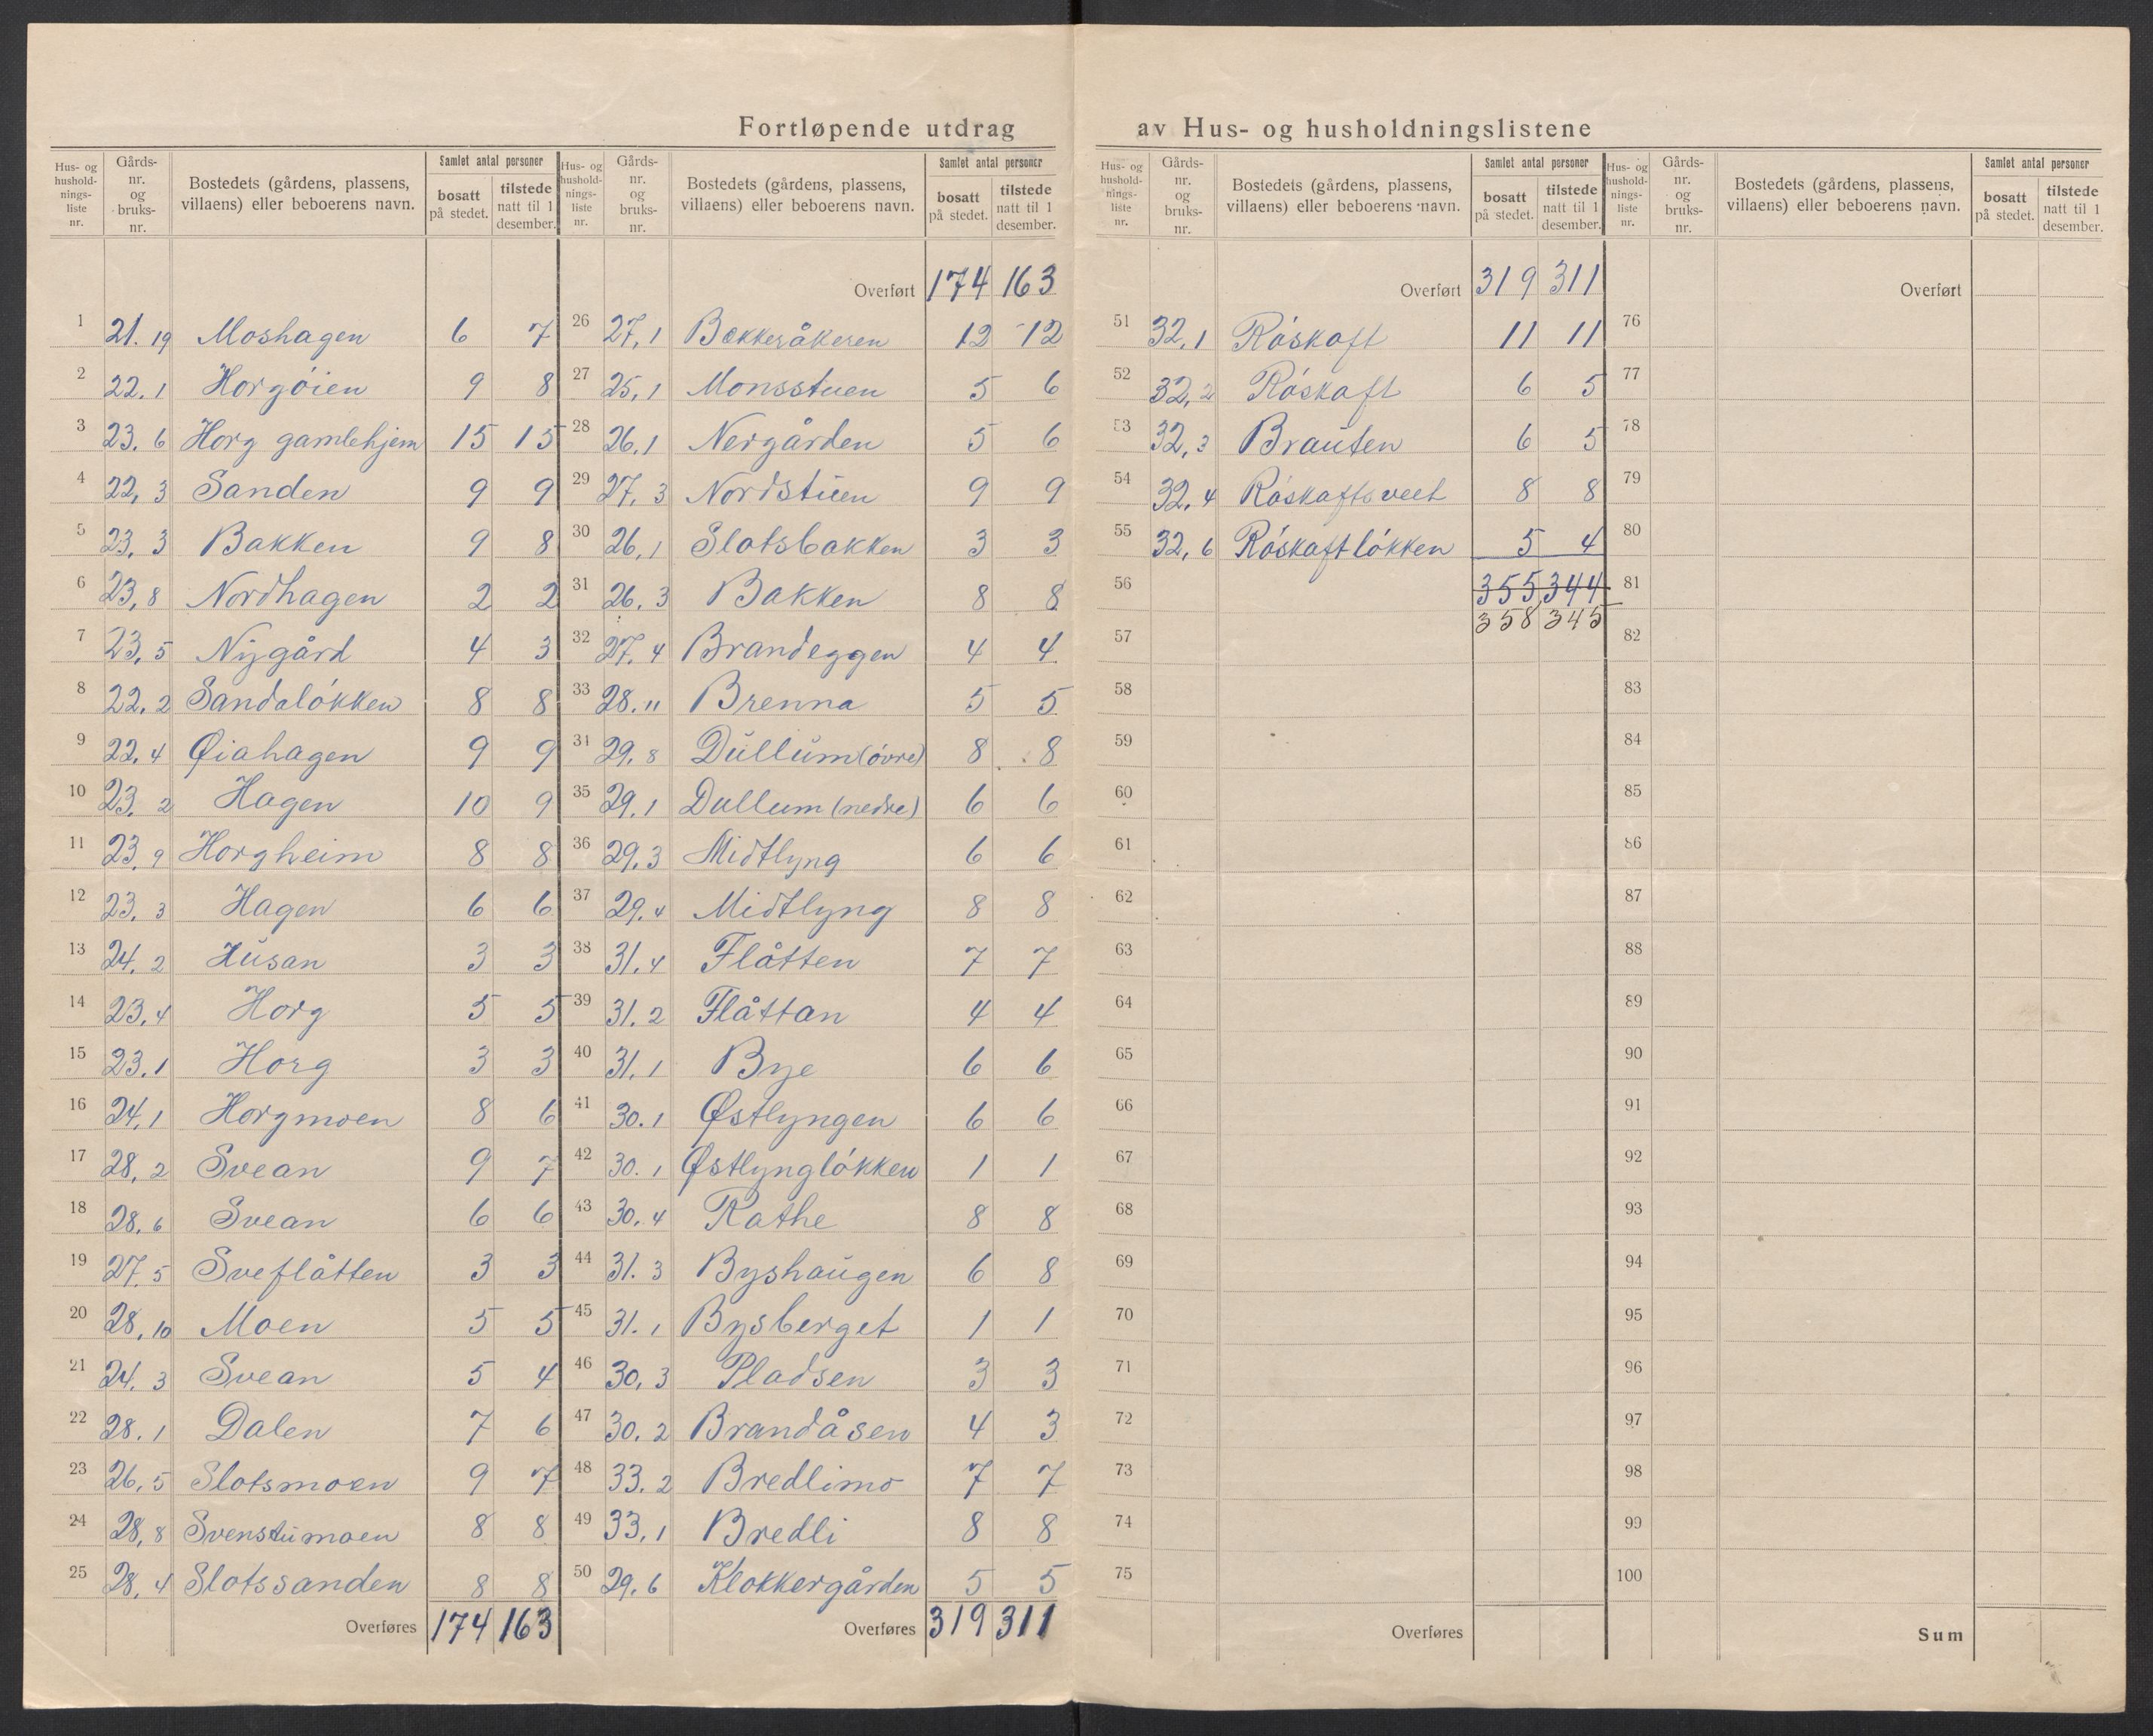 Fortløpende utdrag av Hus- og husholdningslistene
Hus- og husholdnings-liste nr. | Gårds-nr. og bruks-nr. | Bostedets (gårdens, plassens, villaens) eller beboerens navn. | Samlet antal personer | bosatt på stedet. | tilstede natt til 1 desember.
1 21. 19 Moshagen 6 7
2 22. 1 Horgöien 9 8
3 23. 6 Horg gamlehjem 15 15
4 22, 3 Sanden 9 9
5 23. 3 Bakken 9 8
6 23, 8 Nordhagen 2 2
7 23, 5 Nygård 4 3
8 22. 2 Sandalökken 8 8
9 22, 4 Øiahagen 9 9
10 23. 2 Hagen 10 9
11 23, 9 Horgheim 8 8
12 23, 3 Hagen 6 6
13 24. 2 Husan 3 3
14 23. 4 Horg 5 5
15 23. 1 Horg 3 3
16 24, 1 Horgmoen 8 6
17 28, 2 Svean 9 7
18 28. 6 Svean 6 6
19 27. 5 Sveflåtten 3 3
20 28, 10 Moen 5 5
21 24. 3 Svean 5 4
22 28. 1 Dalen 7 6
23 26, 5 Slotsmoen 9 7
24 28, 8 Svenstumoen 8 8
25 28. 4 Slotssanden 8 8
Overføres 174 163
Hus- og husholdnings-liste nr. | Gårds-nr. og bruks-nr. | Bostedets (gårdens, plassens, villaens) eller beboerens navn. | Samlet antal personer | bosatt på stedet. | tilstede natt til 1 desember.
Overført 174 163
26 27, 1 Bekkeråkeren 12 12
27 25, 1 Monsstuen 5 6
28 26, 1 Nergården 5 6
29 27, 3 Nordstuen 9 9
30 26, 1 Slotsbakken 3 3
31 26. 3 Bakken 8 8
32 27. 4 Brandeggen 4 4
33 28. " Brenna 5 5
34 29. 8 Dullum (övre) 8 8
35 29. 1 Dullum (nedre) 6 6
36 29. 3 Midtlyng 6 6
37 29. 4 Midtlyng 8 8
38 31. 4 Flåtten 7 7
39 31. 2 Flåttan 4 4
40 31. 1 Bye 6 6
41 30. 1 Østlyngen 6 6
42 30. 1 Østlynglökken 1 1
43 30. 4 Rathe 8 8
44 31. 3 Byshaugen 6 8
45 31. 1 Bysberget 1 1
46 30, 3 Pladsen 3 3
47 30. 2 Brandåsen 4 3
48 33. 2 Bredlimo 7 7
49 33, 1 Bredli 8 8
50 29. 6 Klokkergården 5 5
Overføres 319 311
Hus- og hushold-nings-liste nr. | Gårds-nr. og bruks-nr. | Bostedets (gårdens, plassens, villaens) eller beboerens navn. | Samlet antal personer | bosatt på stedet. | tilstede natt til 1 desember.
Overført 319 311
51 32, 1 Röskaft 11 11
52 32, 2 Röskaft 6 5
53 32, 3 Brauten 6 5
54 32, 4 Röskaftsveet 8 8
55 32, 6 Röskaftlökken 5 4
56 355 344
358 345
57
58
59
60
61
62
63
64
65
66
67
68
69
70
71
72
73
74
75
Overføres
Hus- og hushold-nings-liste nr. | Gårds-nr. og bruks-nr. | Bostedets (gårdens, plassens, villaens) eller beboerens navn. | Samlet antal personer | bosatt på stedet. | tilstede natt til 1 desember.
Overført
76
77
78
79
80
81
82
83
84
85
86
87
88
89
90
91
92
93
94
95
96
97
98
99
100
Sum